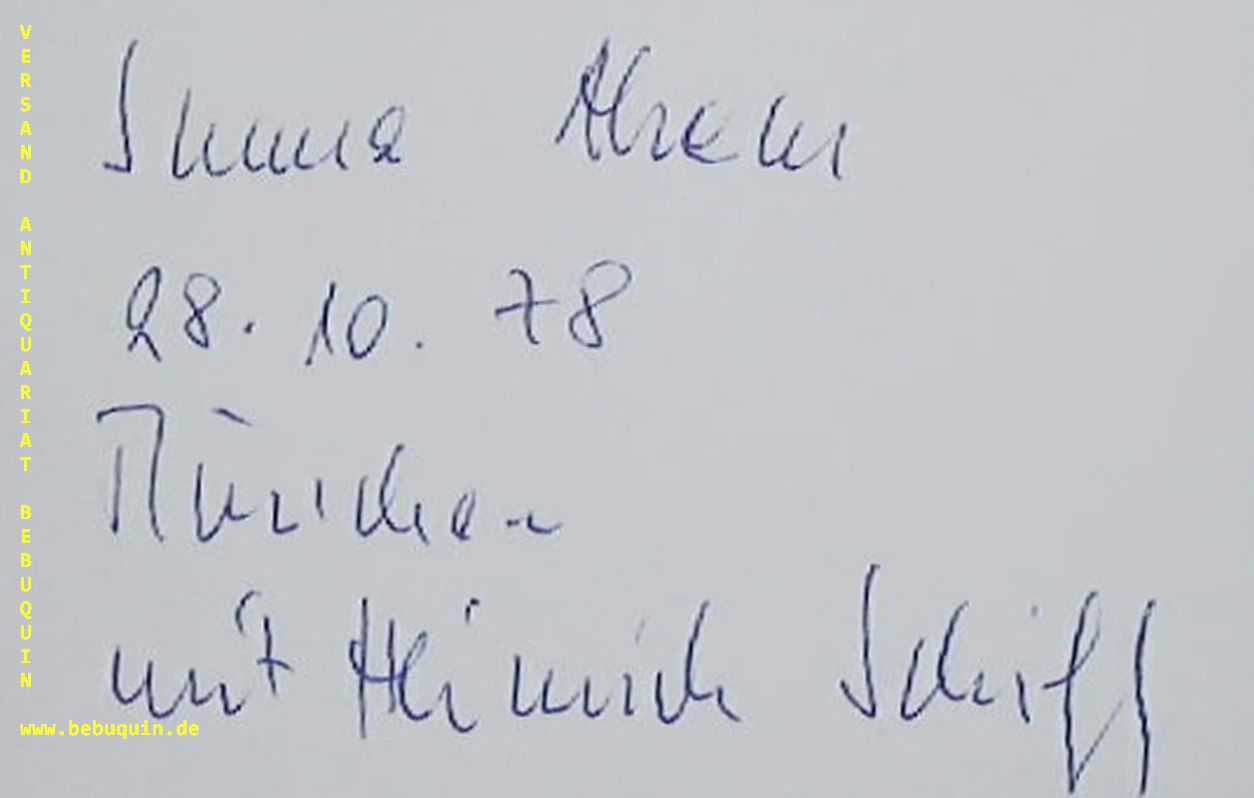 VERSAND ANTIQUARIAT BEBUQUIN
28. 10. 78
München
mit Heinrich Schiff
www.bebuquin.de